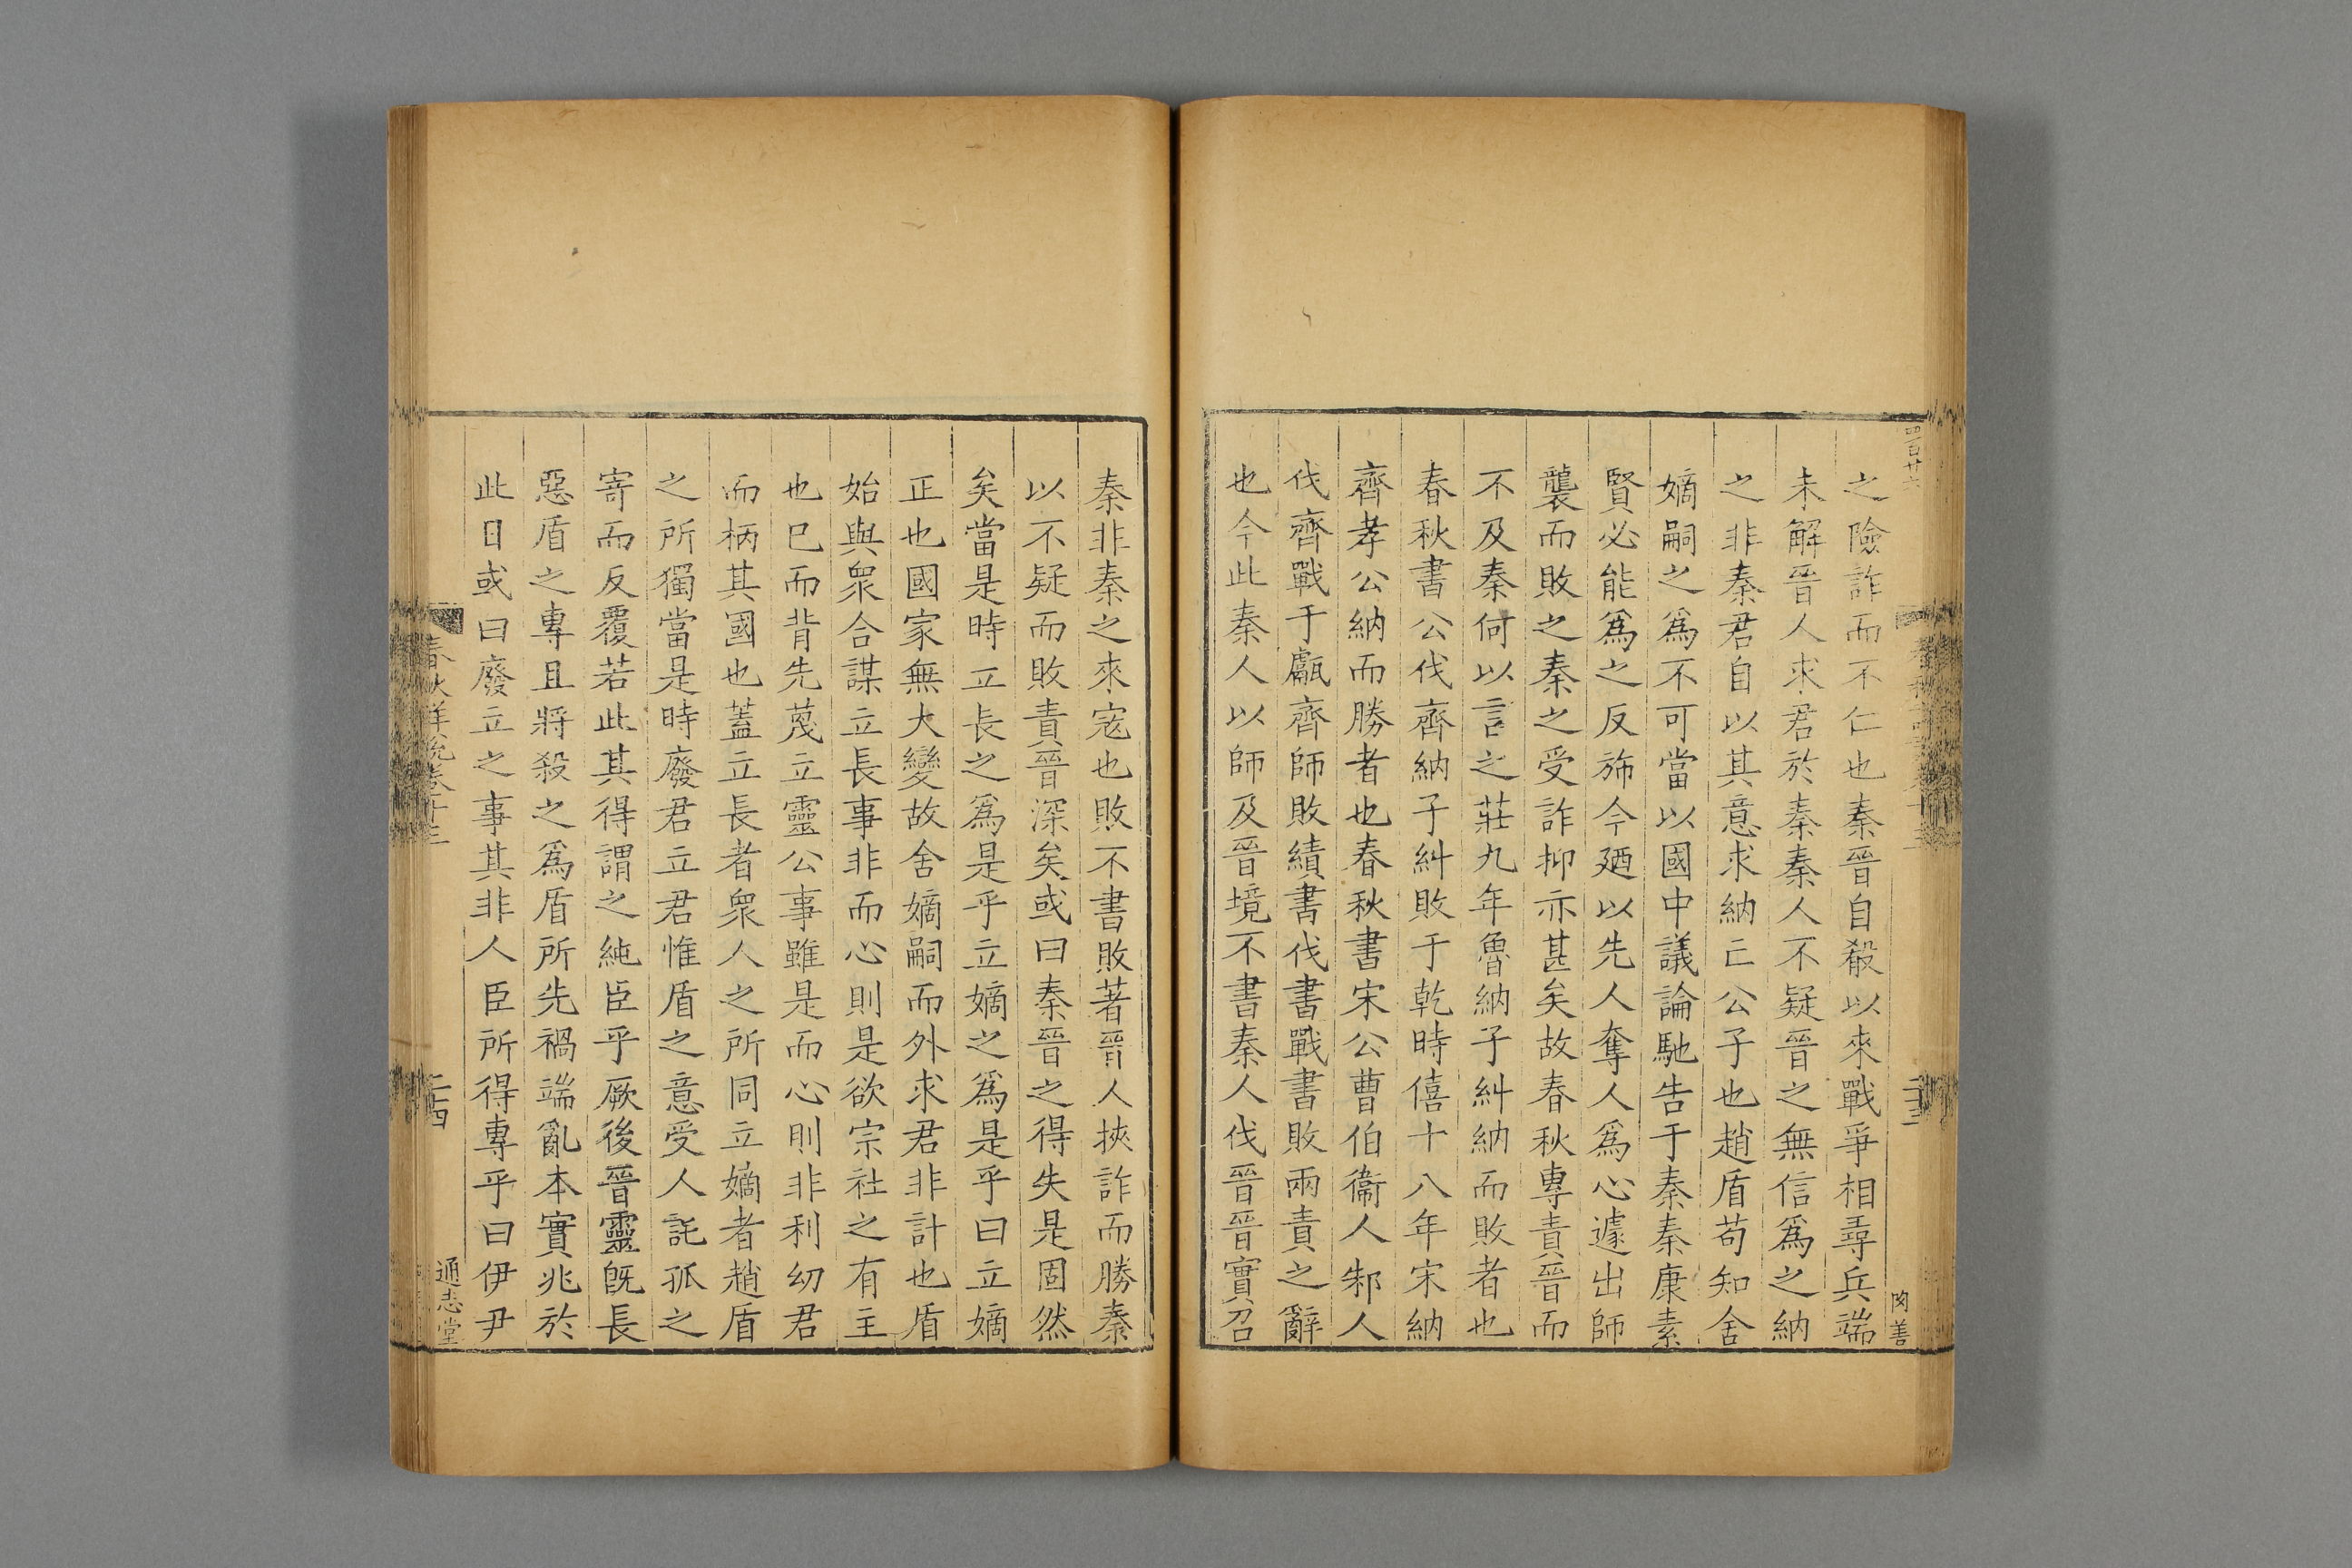 之險詐而不仁也秦晉自殽以來戰爭相尋兵端
未解晉人求君於秦秦人不疑晉之無信爲之納
之非秦君自以其意求納亡公子也趙盾苟知舍
嫡嗣之爲不可當以國中議論馳告于秦秦康素
賢必能爲之反斾今廼以先人奪人爲心遽出師
襲而敗之秦之受詐抑亦甚矣故春秋專責晉而
不及秦何以言之莊九年魯納子糾納而敗者也
春秋書公伐齊納子糾敗于乾時僖十八年宋納
齊孝公納而勝者也春秋書宋公曹伯衞人邾人
伐齊戰于甗齊師敗績書伐書戰書敗兩責之辭
也今此秦人以師及晉境不書秦人伐晉晉實召
秦非秦之來宼也敗不書敗著晉人挾詐而勝秦
以不疑而敗責晉深矣或曰秦晉之得失是固然
矣當是時立長之爲是乎立嫡之爲是乎曰立嫡
正也國家無大變故舍嫡嗣而外求君非計也盾
始與衆合謀立長事非而心則是欲宗社之有主
也已而背先蔑立靈公事雖是而心則非利幼君
而柄其國也蓋立長者衆人之所同立嫡者趙盾
之所獨當是時廢君立君惟盾之意受人託孤之
寄而反覆若此其得謂之純臣乎厥後晉靈旣長
惡盾之專且將殺之爲盾所先禍端亂本實兆於
此日或曰廢立之事其非人臣所得專乎曰伊尹
春秋詳說卷十三
二十四
通志堂
四百廿六
二十三
閔善